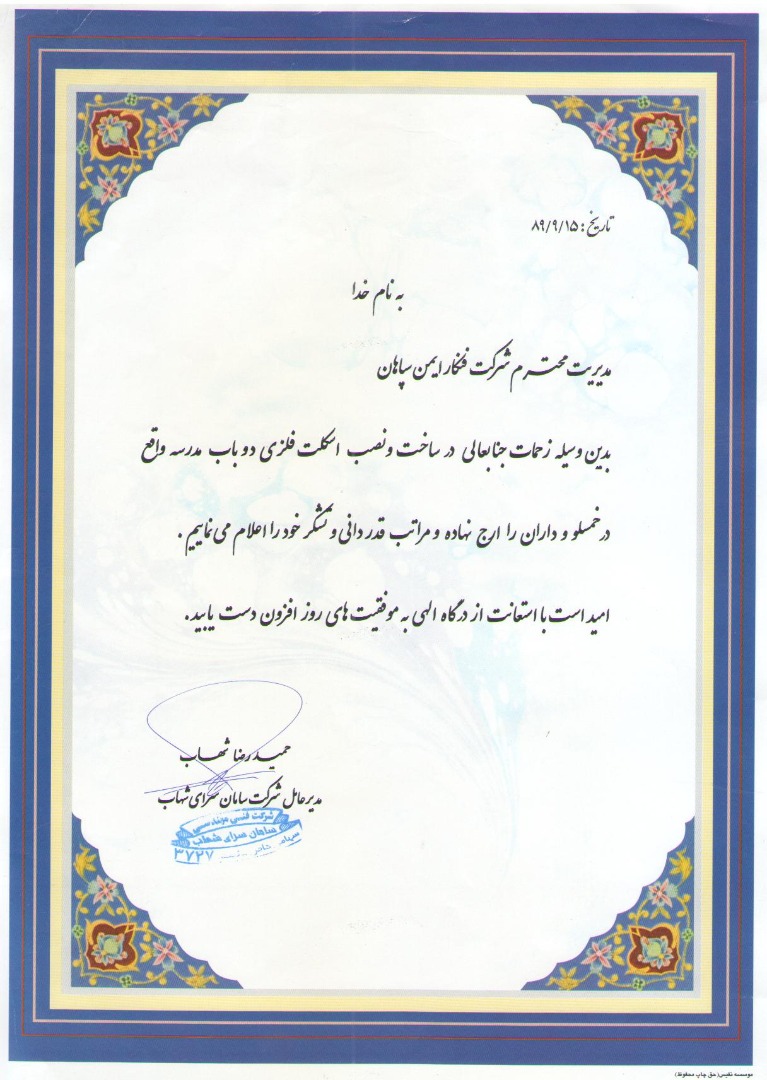 تاریخ: ۸۹/۹/۱۵
به نام خدا
مدیریت محترم شرکت فنکار ایمن سپاهان
بدین وسیله زحمات جنابعالی در ساخت و نصب اسکلت فلزی دو باب مدرسه واقع
در خمسلو و داران را ارج نهاده و مراتب قدردانی و تشکر خود را اعلام می نماییم.
امید است با استعانت از درگاه الهی به موفقیت های روز افزون دست یابید.
حمیدرضا شهاب
مدیرعامل شرکت سامان سرای شهاب
شرکت فنی مهندسی
سامان سرای شهاب
۳۷۲۷
موسسه نفیس (حق چاپ محفوظ)